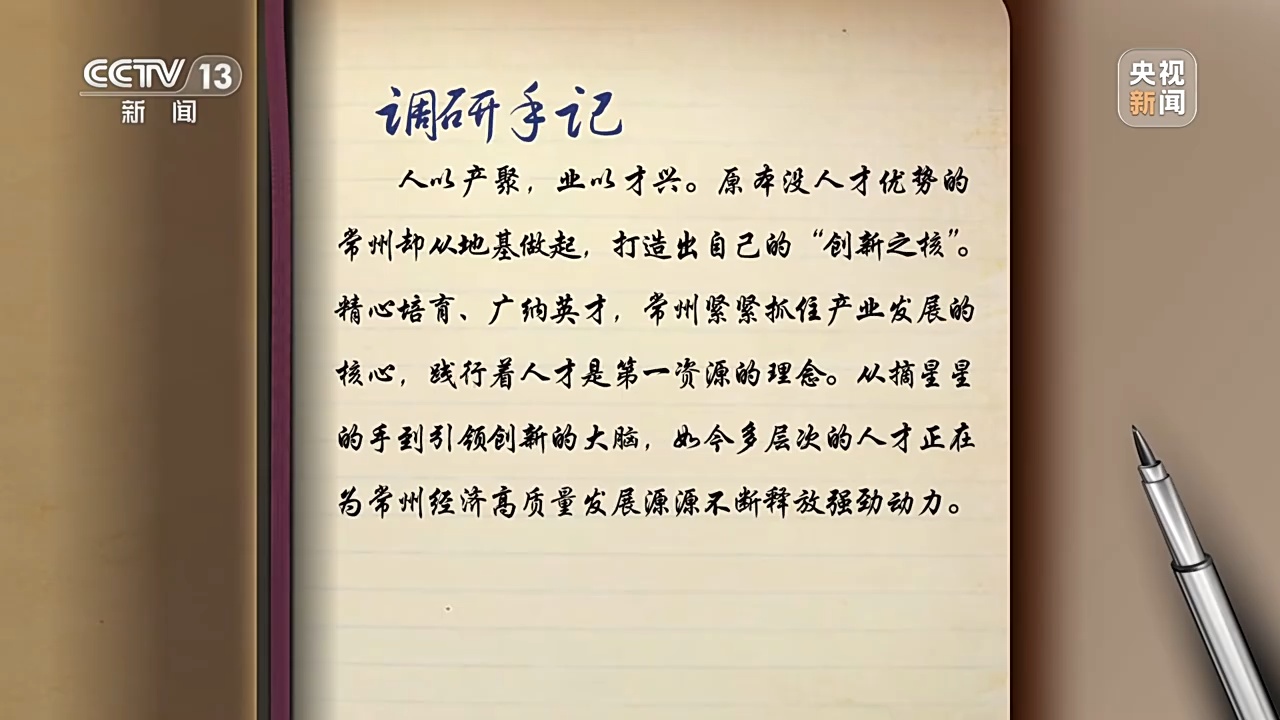 CCTV 13
新闻
央视
新闻
调研手记
人以产聚，业以才兴。原本没人才优势的
常州却从地基做起，打造出自己的“创新之核”。
精心培育、广纳英才，常州紧紧抓住产业发展的
核心，践行着人才是第一资源的理念。从摘星星
的手到引领创新的大脑，如今多层次的人才正在
为常州经济高质量发展源源不断释放强劲动力。